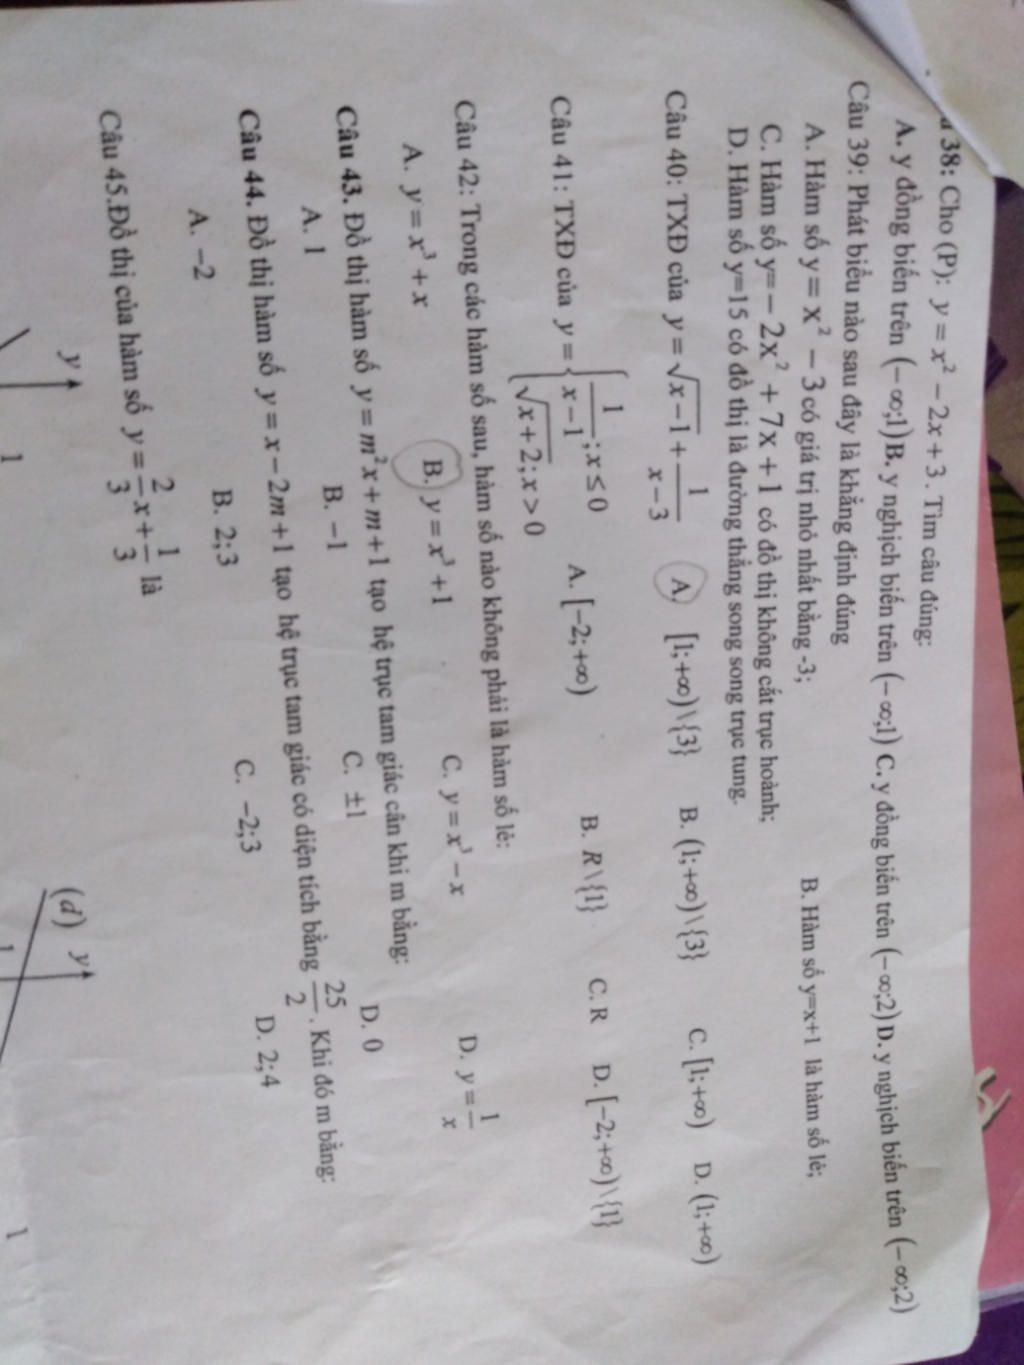 38: Cho (P): y = x² − 2x + 3 . Tìm câu đúng:
A. y đồng biến trên (−∞;1) B. y nghịch biến trên (−∞;1) C. y đồng biến trên (−∞;2) D. y nghịch biến trên (−∞;2)
Câu 39: Phát biểu nào sau đây là khẳng định đúng
A. Hàm số y = x² − 3 có giá trị nhỏ nhất bằng -3; B. Hàm số y=x+1 là hàm số lẻ;
C. Hàm số y= − 2x² + 7x + 1 có đồ thị không cắt trục hoành;
D. Hàm số y=15 có đồ thị là đường thẳng song song trục tung.
Câu 40: TXĐ của y = √(x−1) + 1/(x−3) A. [1;+∞)\{3} B. (1;+∞)\{3} C. [1;+∞) D. (1;+∞)
Câu 41: TXĐ của y = { 1/(x−1); x ≤ 0 √(x+2); x > 0 A. [−2;+∞) B. R\{1} C. R D. [−2;+∞)\{1}
Câu 42: Trong các hàm số sau, hàm số nào không phải là hàm số lẻ:
A. y = x³ + x B. y = x³ + 1 C. y = x³ − x D. y = 1/x
Câu 43. Đồ thị hàm số y = m²x + m + 1 tạo hệ trục tam giác cân khi m bằng:
A. 1 B. −1 C. ±1 D. 0
Câu 44. Đồ thị hàm số y = x − 2m + 1 tạo hệ trục tam giác có diện tích bằng 25/2 . Khi đó m bằng:
A. −2 B. 2;3 C. −2;3 D. 2;4
Câu 45.Đồ thị của hàm số y = 2/3 x + 1/3 là
y (d) y
1 1 1